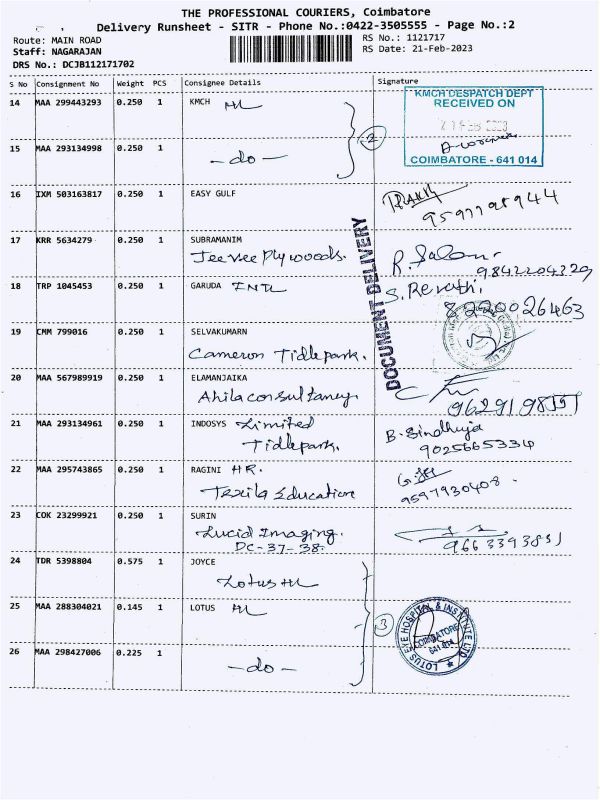 THE PROFESSIONAL COURIERS, Coimbatore
Delivery Runsheet - SITR - Phone No.:0422-3505555 - Page No.:2
Route: MAIN ROAD
RS No.: 1121717
Staff: NAGARAJAN
RS Date: 21-Feb-2023
DRS No.: DCJB112171702
S No Consignment No Weight PCS Consignee Details Signature
14 MAA 299443293 0.250 1 KMCH
KMCH DESPATCH DEPT
RECEIVED ON
21 FEB 2023
COIMBATORE - 641 014
2
15 MAA 293134998 0.250 1
- do -
16 IXM 503163817 0.250 1 EASY GULF
9597798944
DOCUMENT DELIVERY
17 KRR 5634279 0.250 1 SUBRAMANIM
Jeevee Plywoods.
9842204329
18 TRP 1045453 0.250 1 GARUDA INTL
S. Revathi.
8220026463
19 CMM 799016 0.250 1 SELVAKUMARN
Cameron Tidlepark.
20 MAA 567989919 0.250 1 ELAMANJAIKA
Ahila consultancy.
21 MAA 293134961 0.250 1 INDOSYS Limited
Tidlepark.
B. Sindhuja
9025665334
22 MAA 295743865 0.250 1 RAGINI HR.
Texila Education
9597930408.
23 COK 23299921 0.250 1 SURIN
Lucid Imaging.
DC-37-38.
9663393851
24 TDR 5398804 0.575 1 JOYCE
Lotus
25 MAA 288304021 0.145 1 LOTUS
3
LOTUS EYE HOSPITAL & INSTITUTE LTD
COIMBATORE
641 014
26 MAA 298427006 0.225 1
- do -